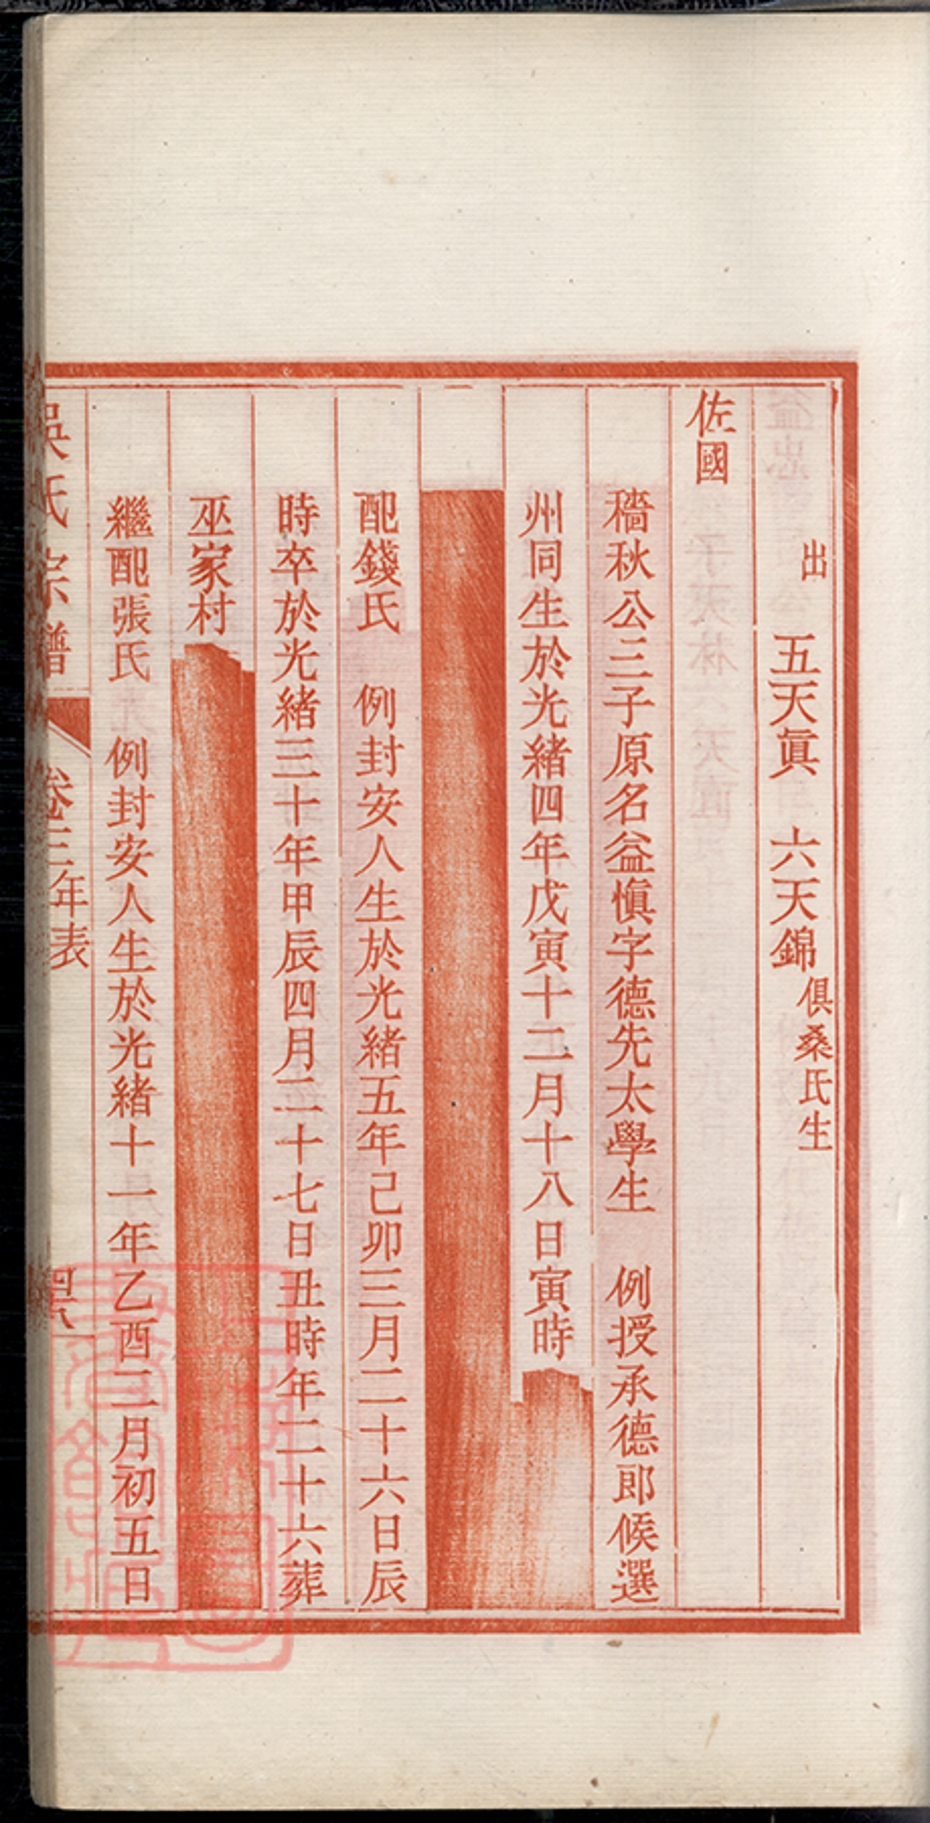 出　五天眞　六天錦俱桑氏生
佐國
穡秋公三子原名益愼字德先太學生　例授承德郎候選
州同生於光緒四年戊寅十二月十八日寅時
配錢氏　例封安人生於光緒五年己卯三月二十六日辰
時卒於光緒三十年甲辰四月二十七日丑時年二十六葬
巫家村
繼配張氏　例封安人生於光緒十一年乙酉二月初五日
吳氏宗譜　卷三年表